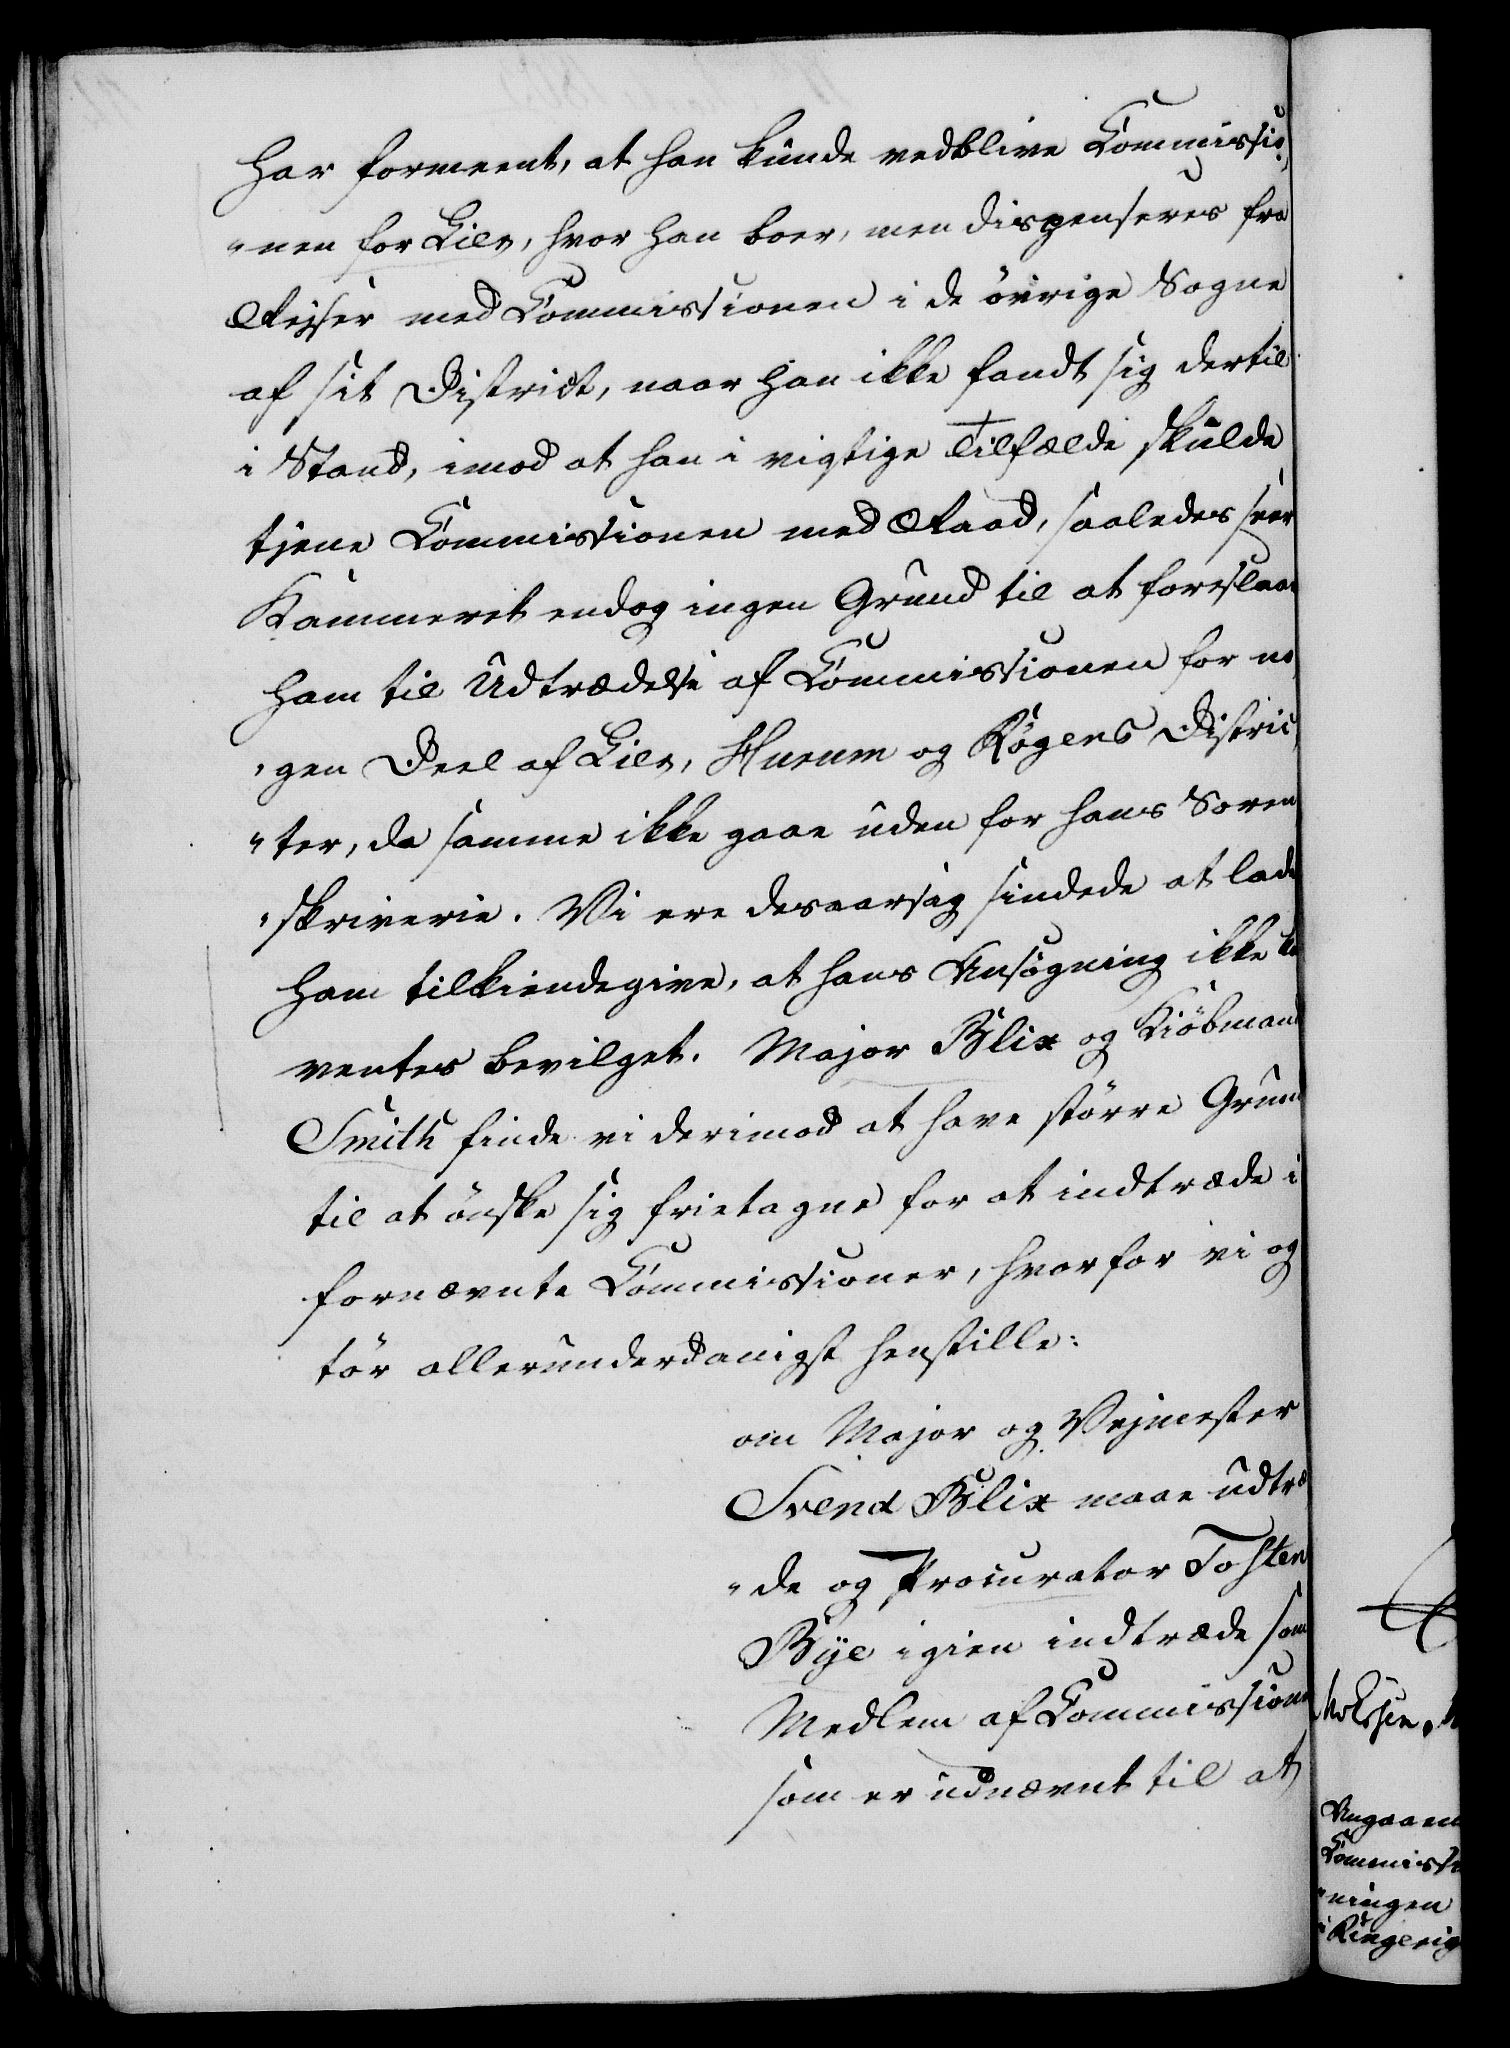 har formeent, at han kunde vedblive Commissio-
"nen for Lier, hvor han boer, men dispenseres fra
Rejser med Commissionen i de övrige Sogne
af sit District, naar han ikke fandt sig dertil
i Stand, imod at han i vigtige Tilfælde skulde
tjene Commissionen med Raad, saaledes seer
Kammeret endog ingen Grund til at foreslaae
ham til Udtrædelse af Commissionen for no-
"gen Deel af Lier, Hurum og Rögens Distric-
"ter, da samme ikke gaae uden for hans Soren-
"skriverie. Vi ere desaarsag sindede at lade
ham tilkiendegive, at hans Ansögning ikke
ventes bevilget. Major Blix og Kiöbmand
Smith finde vi derimod at have större Grund
til at önske sig frietagne for at indtræde i
fornævnte Commissioner, hvorfor vi og
tör allerunderdanigst henstille:
om Major og Vejmester
Svend Blix maae udtræ-
"de og Procurator Tosten
Bye igien indtræde som
Medlem af Commissionen
som er udnævnt til at
Angaaen
Commissi
"ningen
Ringerig